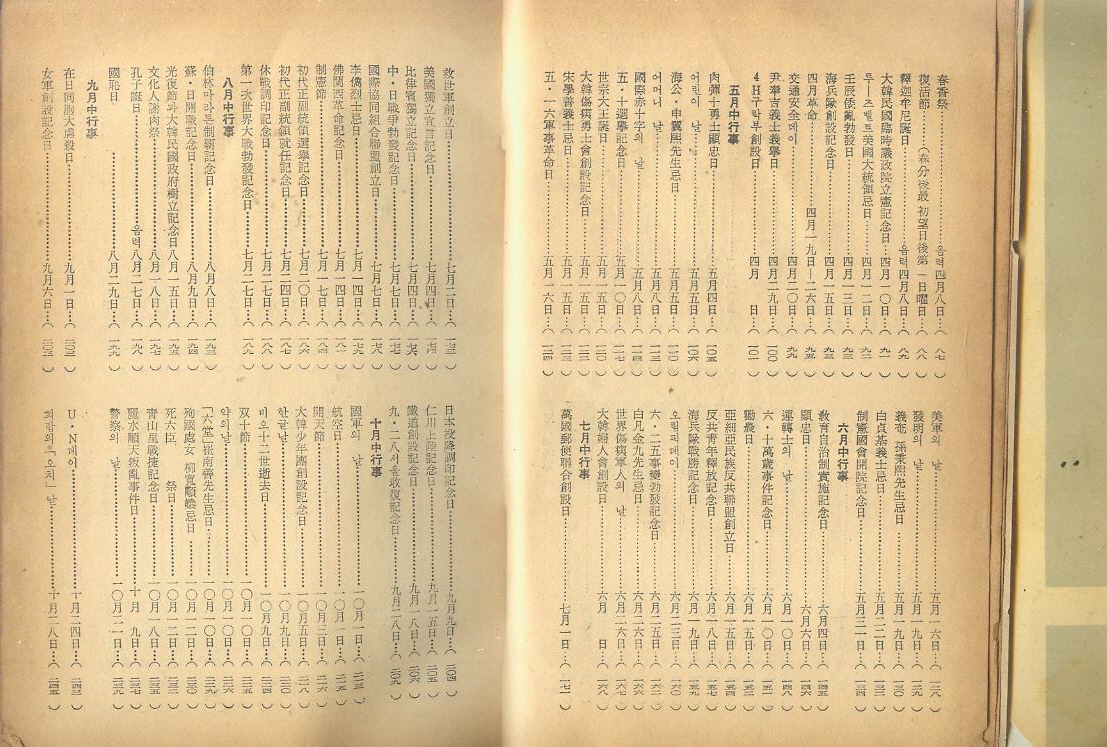 春香祭……음력四月八日…(八七)
復活節……(春分後最初望日後第一日曜日…(八八)
釋迦牟尼誕日……음력四月八日…(八九)
大韓民國臨時議政院立憲記念日…四月一〇日…(九一)
루ㅡ즈벨트美國大統領忌日……四月一二日…(九二)
壬辰倭亂勃發日……四月一三日…
海兵隊創設記念日……四月一五日…
四月革命……四月一九日—二六日…(九五)
交通安全데이……四月二〇日…(九九)
尹奉吉義士義擧日……四月二九日…(一〇〇)
4H구락부創設日……四月 日…(一〇一)
五月中行事
肉彈十勇士顯忠日……五月四日…(一〇五)
어린이 날……五月五日…(一〇六)
海公・申翼熙先生忌日……五月五日…(一一〇)
어머니 날……五月八日…(一一三)
國際赤十字의 날……五月八日…(一一四)
五・十選擧記念日……五月一〇日…(一一七)
世宗大王誕日……五月一五日…(一二〇)
大韓傷痍勇士會創設記念日……五月一五日…
宋學善義士忌日……五月一五日…
五・一六軍事革命日……五月一六日…
美軍의 날……五月一六日…(一三八)
發明의 날……五月一九日…
義菴 孫秉熙先生忌日……五月一九日…
白貞基義士忌日……五月二二日…
制憲國會開院記念日……五月三一日…
六月中行事
敎育自治制實施記念日……六月四日…
顯忠日……六月六日…(一四六)
運轉士의 날……六月一〇日…(一四八)
六・十萬歲事件記念日……六月一〇日…
勸農日……六月一五日…
亞細亞民族反共聯盟創立日……六月一五日…
反共靑年釋放記念日……六月一八日…
海兵隊戰勝記念日……六月一九日…
오림픽데이……六月二三日…(一六〇)
六・二五事變勃發記念日……六月二五日…
白凡金九先生忌日……六月二六日…
世界傷痍軍人의 날……六月二六日…(一六七)
大韓婦人會創設日……六月 日…(一六八)
七月中行事
萬國郵便聯合創設日……七月一日…(一七一)
救世軍創立日……七月二日…
美國獨立宣言記念日……七月四日…
比律賓獨立記念日……七月四日…
中・日戰爭勃發記念日……七月七日…
國際協同組合聯盟創立日……七月七日…(一七八)
李儁烈士忌日……七月一四日…
佛蘭西革命記念日……七月一四日…
制憲節……七月一七日…(一八四)
初代正副統領選擧記念日……七月二〇日…(一八六)
初代正副統領就任記念日……七月二四日…
休戰調印記念日……七月二七日…(一八八)
第一次世界大戰勃發記念日……七月二七日…
八月中行事
伯林마라톤制覇記念日……八月八日…
蘇・日開戰記念日……八月九日…(一九四)
光復節과大韓民國政府樹立記念日八月一五日…
文化人謝肉祭……八月一八日…(一九七)
孔子誕日……음력八月二七日…
國恥日……八月二九日…(一九九)
九月中行事
在日同胞大虐殺日……九月一日…(二〇三)
女軍創設記念日……九月六日…
日本投降調印記念日……九月九日…(二〇四)
仁川上陸記念日……九月一五日…
鐵道創設記念日……九月一八日…(二〇六)
九・二八서울收復記念日……九月二八日…(二〇九)
十月中行事
國軍의 날……一〇月一日…
航空日……一〇月一日…
開天節……一〇月三日…(二一六)
大韓少年團創設記念日……一〇月五日…
한글날……一〇月九日…(二二〇)
비오十二世逝去日……一〇月九日…(二二四)
双十節……一〇月一〇日…
약의날……一〇月一〇日…(二二六)
「六堂」崔南善先生忌日……一〇月一〇日…
殉國處女 柳寬順孃忌日……一〇月一二日…
死六臣 祭日……一〇月一二日…
靑山里戰捷記念日……一〇月一八日…
麗水順天叛亂事件日……十月一九日…
警察의 날……一〇月二一日…(二三九)
U・N데이……十月二四日…(二四三)
희랍의「오치」날……十月二八日…(二四五)